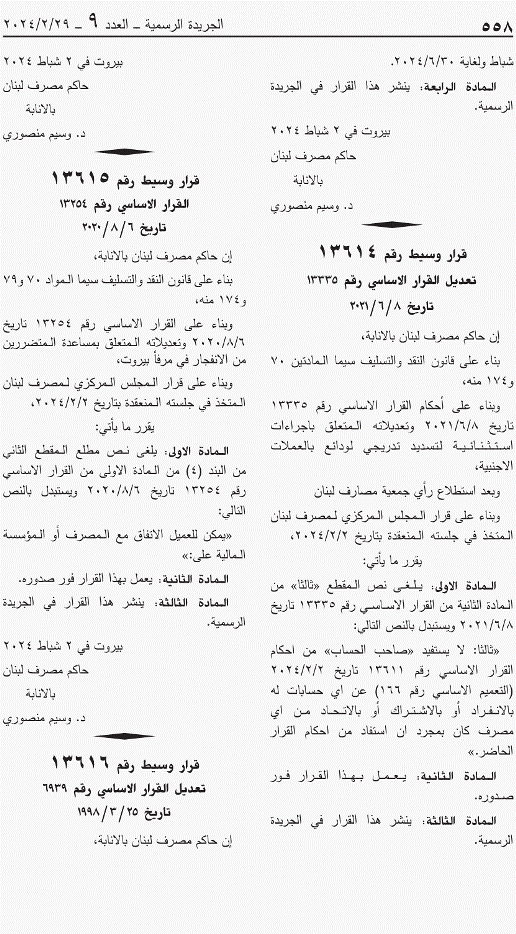 ٥٥٨
الجريدة الرسمية ـ العدد ٩ ـ ٢٠٢٤/٢/٢٩
شباط ولغاية ٢٠٢٤/٦/٣٠.
المادة الرابعة: ينشر هذا القرار في الجريدة
الرسمية.
بيروت في ٢ شباط ٢٠٢٤
حاكم مصرف لبنان
بالانابة
د. وسيم منصوري
قرار وسيط رقم ١٣٦١٤
تعديل القرار الاساسي رقم ١٣٣٣٥
تاريخ ٢٠٢١/٦/٨
إن حاكم مصرف لبنان بالانابة،
بناء على قانون النقد والتسليف سيما المادتين ٧٠
و١٧٤ منه،
وبناء على أحكام القرار الاساسي رقم ١٣٣٣٥
تاريخ ٢٠٢١/٦/٨ وتعديلاته المتعلق باجراءات
استثنائية لتسديد تدريجي لودائع بالعملات
الاجنبية،
وبعد استطلاع رأي جمعية مصارف لبنان
وبناء على قرار المجلس المركزي لمصرف لبنان
المتخذ في جلسته المنعقدة بتاريخ ٢٠٢٤/٢/٢،
يقرر ما يأتي:
المادة الاولى: يلغى نص المقطع «ثالثا» من
المادة الثانية من القرار الاساسي رقم ١٣٣٣٥ تاريخ
٢٠٢١/٦/٨ ويستبدل بالنص التالي:
«ثالثا: لا يستفيد «صاحب الحساب» من احكام
القرار الاساسي رقم ١٣٦١١ تاريخ ٢٠٢٤/٢/٢
(التعميم الاساسي رقم ١٦٦) عن اي حسابات له
بالانفراد أو بالاشتراك أو بالاتحاد من اي
مصرف كان بمجرد ان استفاد من احكام القرار
الحاضر.»
المادة الثانية: يعمل بهذا القرار فور
صدوره.
المادة الثالثة: ينشر هذا القرار في الجريدة
الرسمية.
بيروت في ٢ شباط ٢٠٢٤
حاكم مصرف لبنان
بالانابة
د. وسيم منصوري
قرار وسيط رقم ١٣٦١٥
القرار الاساسي رقم ١٣٢٥٤
تاريخ ٢٠٢٠/٨/٦
إن حاكم مصرف لبنان بالانابة،
بناء على قانون النقد والتسليف سيما المواد ٧٠ و٧٩
و١٧٤ منه،
وبناء على القرار الاساسي رقم ١٣٢٥٤ تاريخ
٢٠٢٠/٨/٦ وتعديلاته المتعلق بمساعدة المتضررين
من الانفجار في مرفأ بيروت،
وبناء على قرار المجلس المركزي لمصرف لبنان
المتخذ في جلسته المنعقدة بتاريخ ٢٠٢٤/٢/٢،
يقرر ما يأتي:
المادة الاولى: يلغى نص مطلع المقطع الثاني
من البند (٤) من المادة الاولى من القرار الاساسي
رقم ١٣٢٥٤ تاريخ ٢٠٢٠/٨/٦ ويستبدل بالنص
التالي:
«يمكن للعميل الاتفاق مع المصرف أو المؤسسة
المالية على:»
المادة الثانية: يعمل بهذا القرار فور صدوره.
المادة الثالثة: ينشر هذا القرار في الجريدة
الرسمية.
بيروت في ٢ شباط ٢٠٢٤
حاكم مصرف لبنان
بالانابة
د. وسيم منصوري
قرار وسيط رقم ١٣٦١٦
تعديل القرار الاساسي رقم ٦٩٣٩
تاريخ ١٩٩٨/٣/٢٥
إن حاكم مصرف لبنان بالانابة،